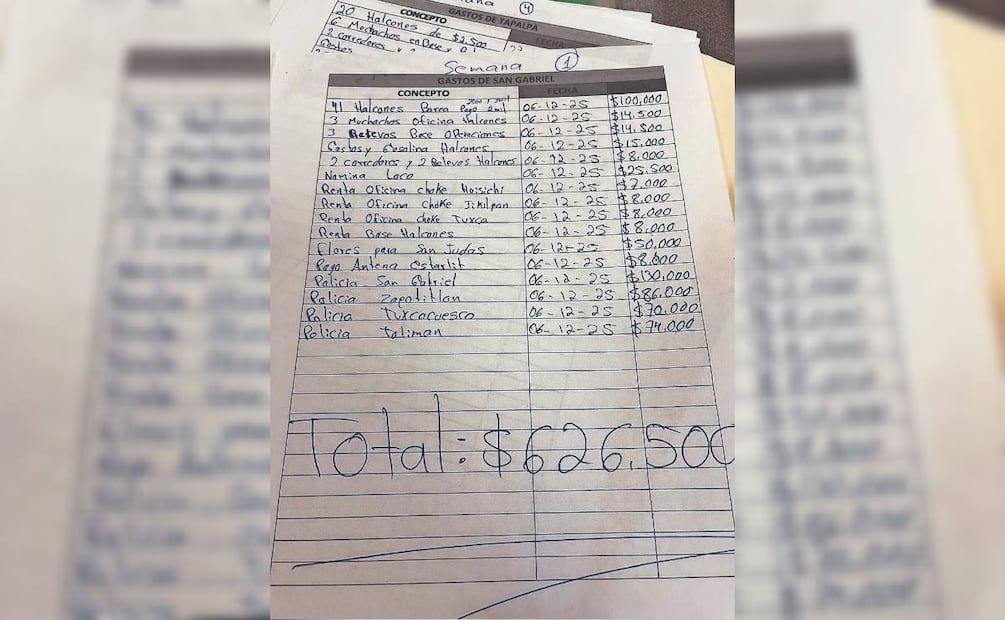 4
GASTOS DE TAPALPA
CONCEPTO FECHA
20 Halcones de $2,500
6 Mochachos en Base
2 corredores y
Gastos
Semana 1
GASTOS DE SAN GABRIEL
CONCEPTO FECHA
41 Halcones Parra Pago 2mil 06-12-25 $100,000
3 Muchachos Oficina Halcones 06-12-25 $14,500
3 Relevos Base Operaciones 06-12-25 $14,500
Costos y Gasolina Halcones 06-12-25 $15,000
2 corredores y 2 Relevos Halcones 06-12-25 $8,000
Namina Loco 06-12-25 $25,500
Renta Oficina choke 06-12-25 $7,000
Renta Oficina Choke Jikilpan 06-12-25 $8,000
Renta Oficina choke Tuxca 06-12-25 $8,000
Renta Base Halcones 06-12-25 $8,000
Flores para San Judas 06-12-25 $50,000
Pago Antena estarlit 06-12-25 $8,000
Policia San Gabriel 06-12-25 $130,000
Policia Zapotitlan 06-12-25 $86,000
Policia Tuxcacuesco 06-12-25 $70,000
Policia toliman 06-12-25 $74,000
Total: $626,500